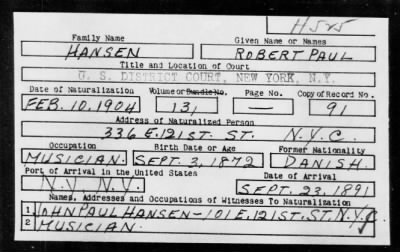 H525
Family Name Given Name or Names
HANSEN ROBERT PAUL
Title and Location of Court
U. S. DISTRICT COURT, NEW YORK, N.Y.
Date of Naturalization Volume or Bundle No. Page No. Copy of Record No.
FEB. 10. 1904 131 — 91
Address of Naturalized Person
336 E. 121 ST. ST. N.Y.C.
Occupation Birth Date or Age Former Nationality
MUSICIAN. SEPT. 3, 1872 DANISH.
Port of Arrival in the United States Date of Arrival
N.Y. N.Y. SEPT. 23. 1891
Names, Addresses and Occupations of Witnesses To Naturalization
1 JOHN PAUL HANSEN - 101 E. 121 ST. ST. N.Y.C.
2 MUSICIAN.